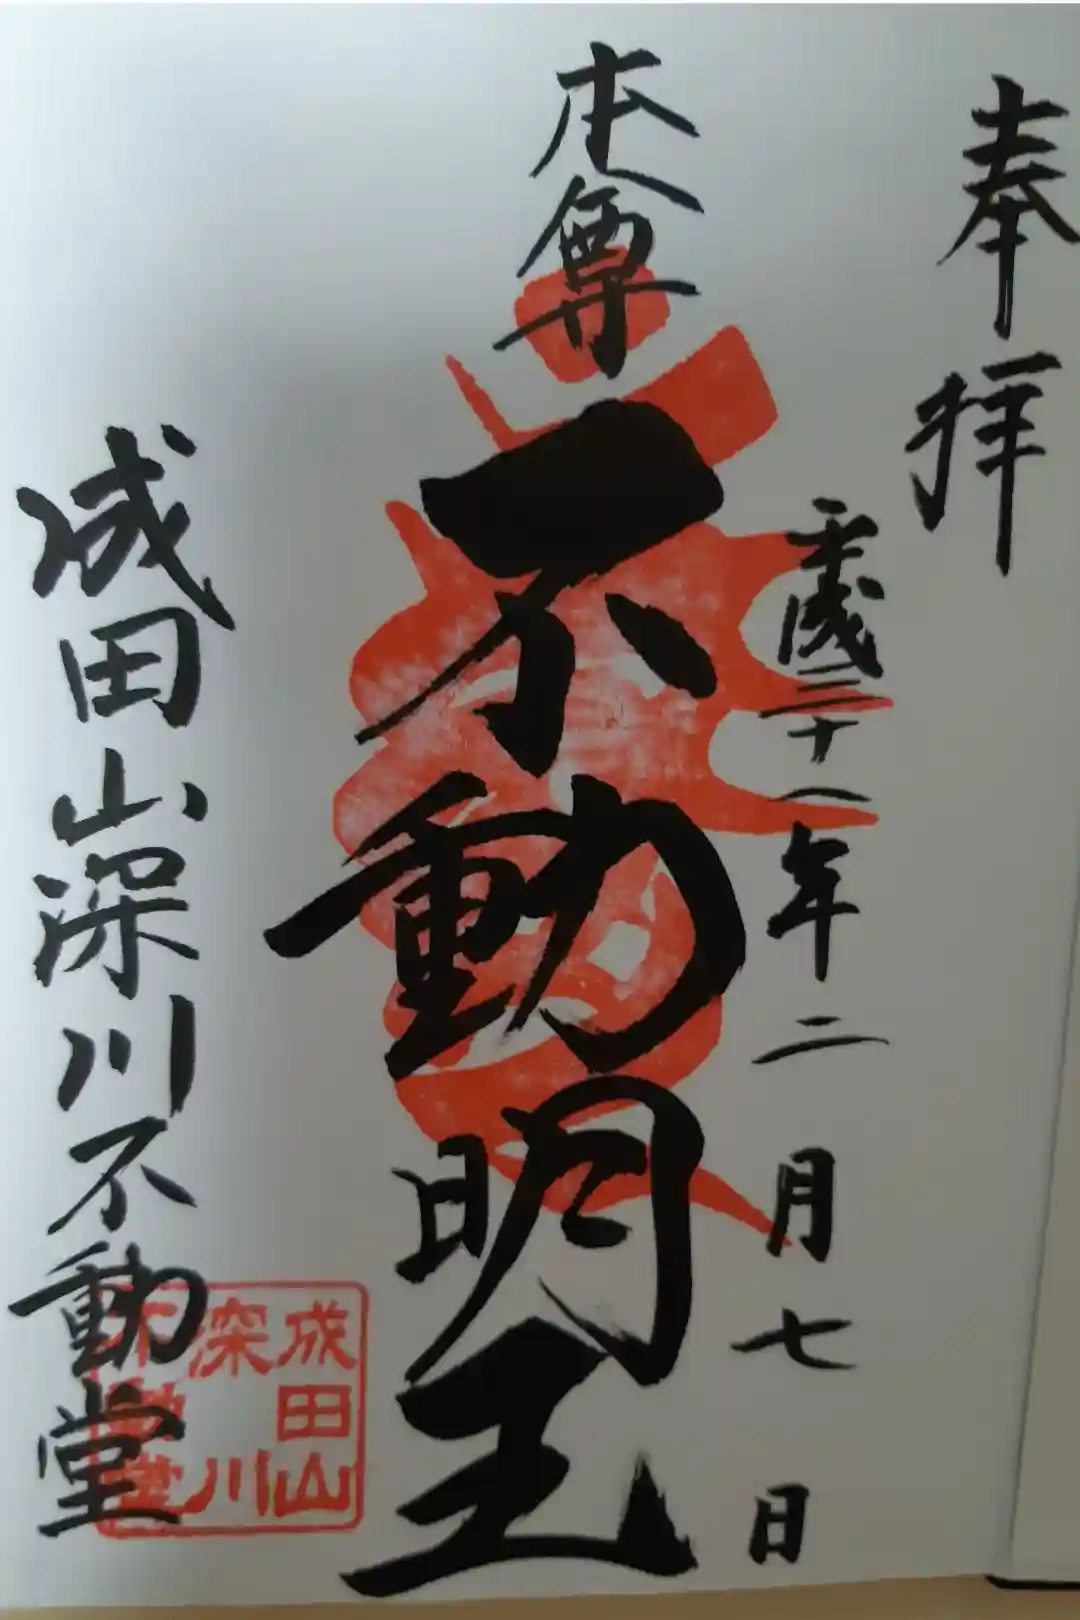 奉拝
平成 年二月七日
本尊
不動明王
成田山深川不動堂
成田山
深川
不動堂